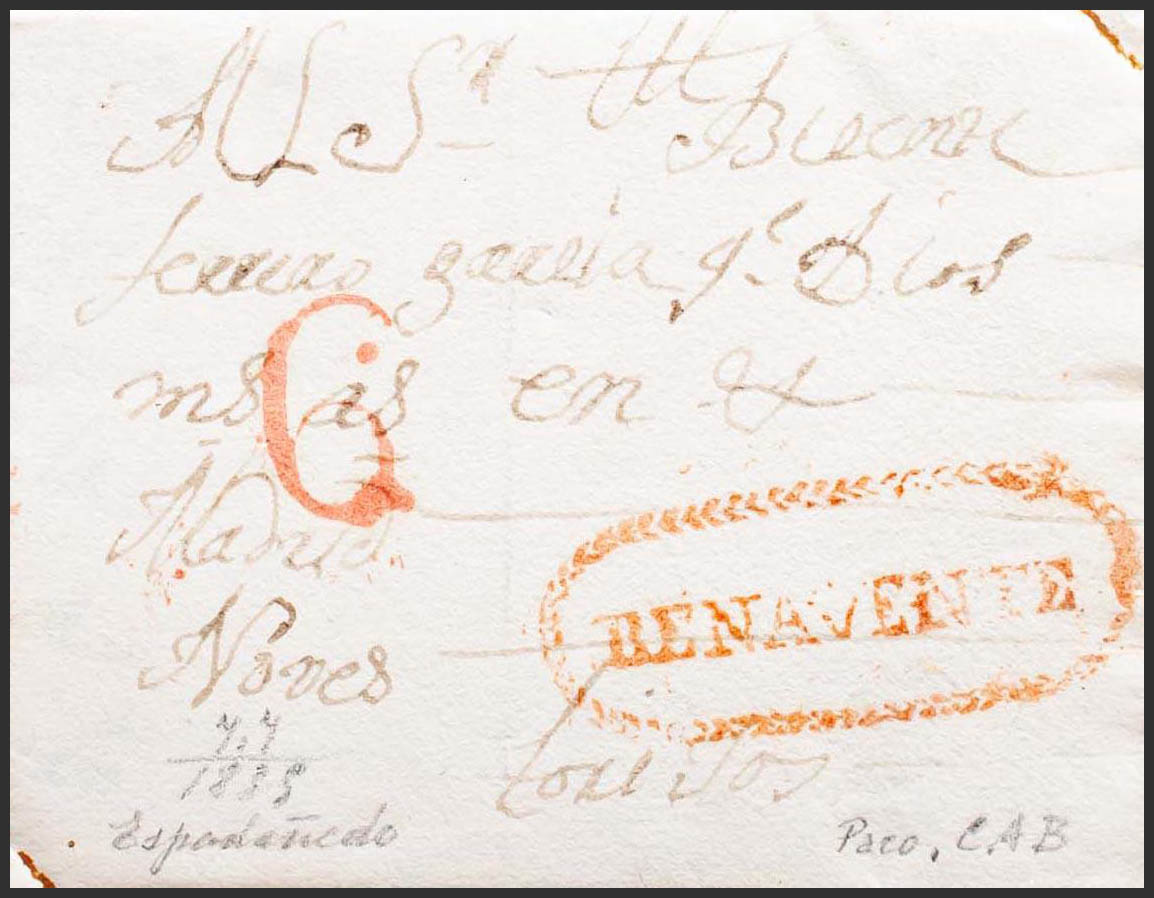 Al Sr Dn Bicente
ferrero garcia qe Dios
ms as en
Madrid
6
BENAVENTE
Noves
7.7
1835
Espadañedo
Paco, CAB